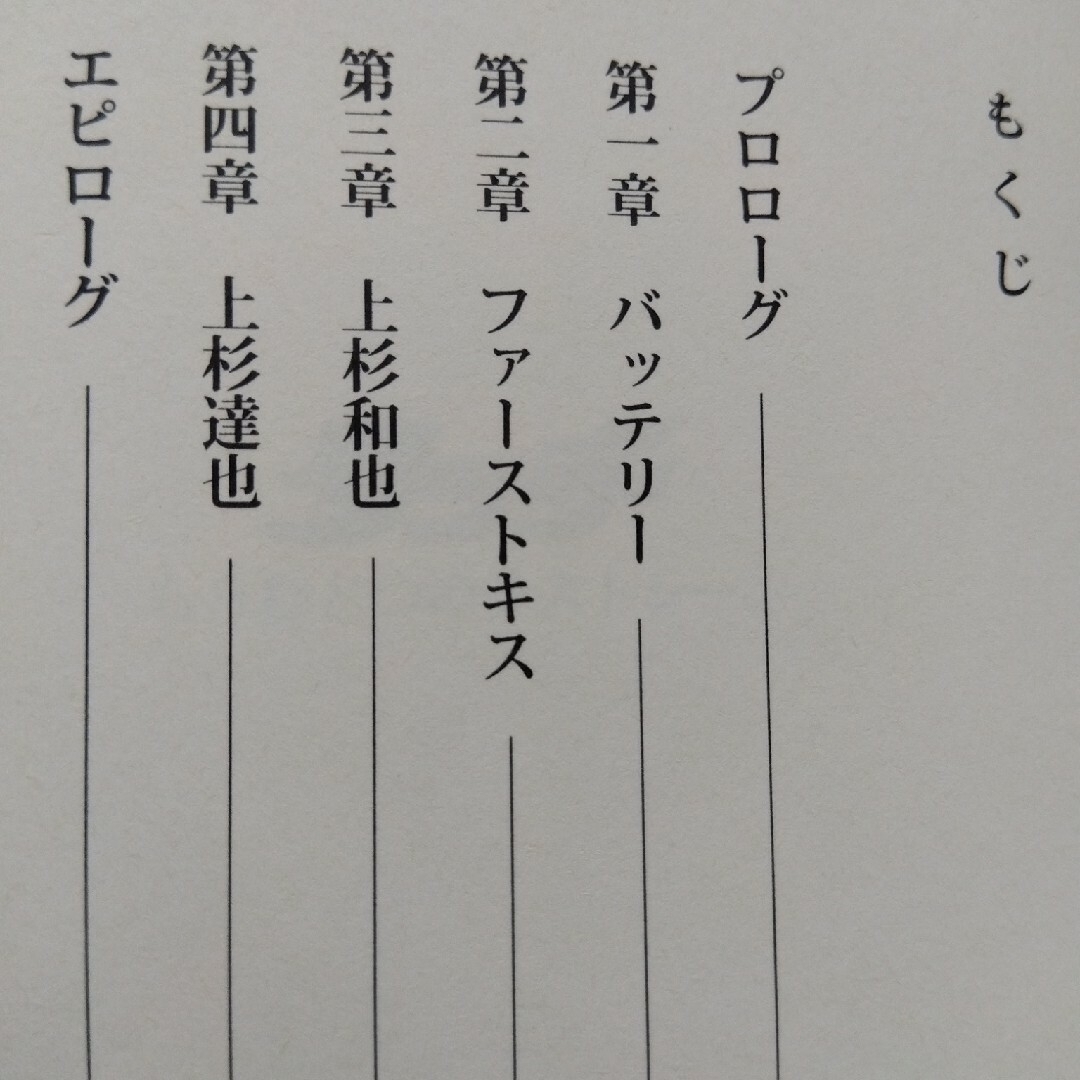 もくじ
プロローグ
第一章 バッテリー
第二章 ファーストキス
第三章 上杉和也
第四章 上杉達也
エピローグ